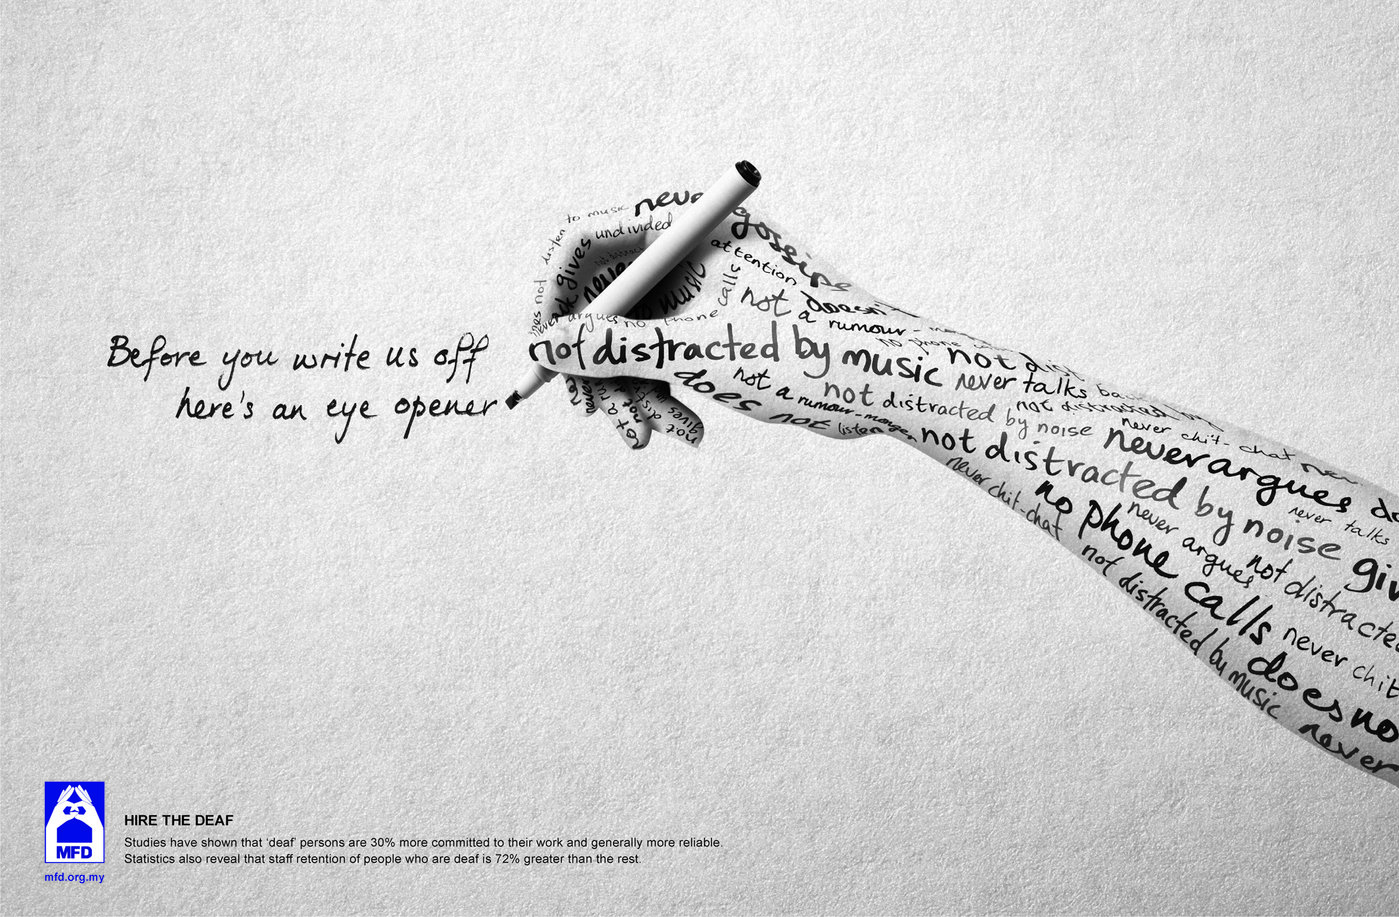 Before you write us off
here's an eye opener
to music never
undivided
gives
does not listen
never
music
argues no phone calls
gossips
attention
not doesn't
a rumour-
no phone
not distracted by music never talks back
not dist
does not listen
not a rumour-monger
not distracted by noise
not distracted by
never chit-chat
not distracted by noise
never argues do
never talks
never chit-chat
no phone calls
never argues
not distracted
giv
never chit
not distracted by music
does no
never
MFD
mfd.org.my
HIRE THE DEAF
Studies have shown that ‘deaf’ persons are 30% more committed to their work and generally more reliable.
Statistics also reveal that staff retention of people who are deaf is 72% greater than the rest.